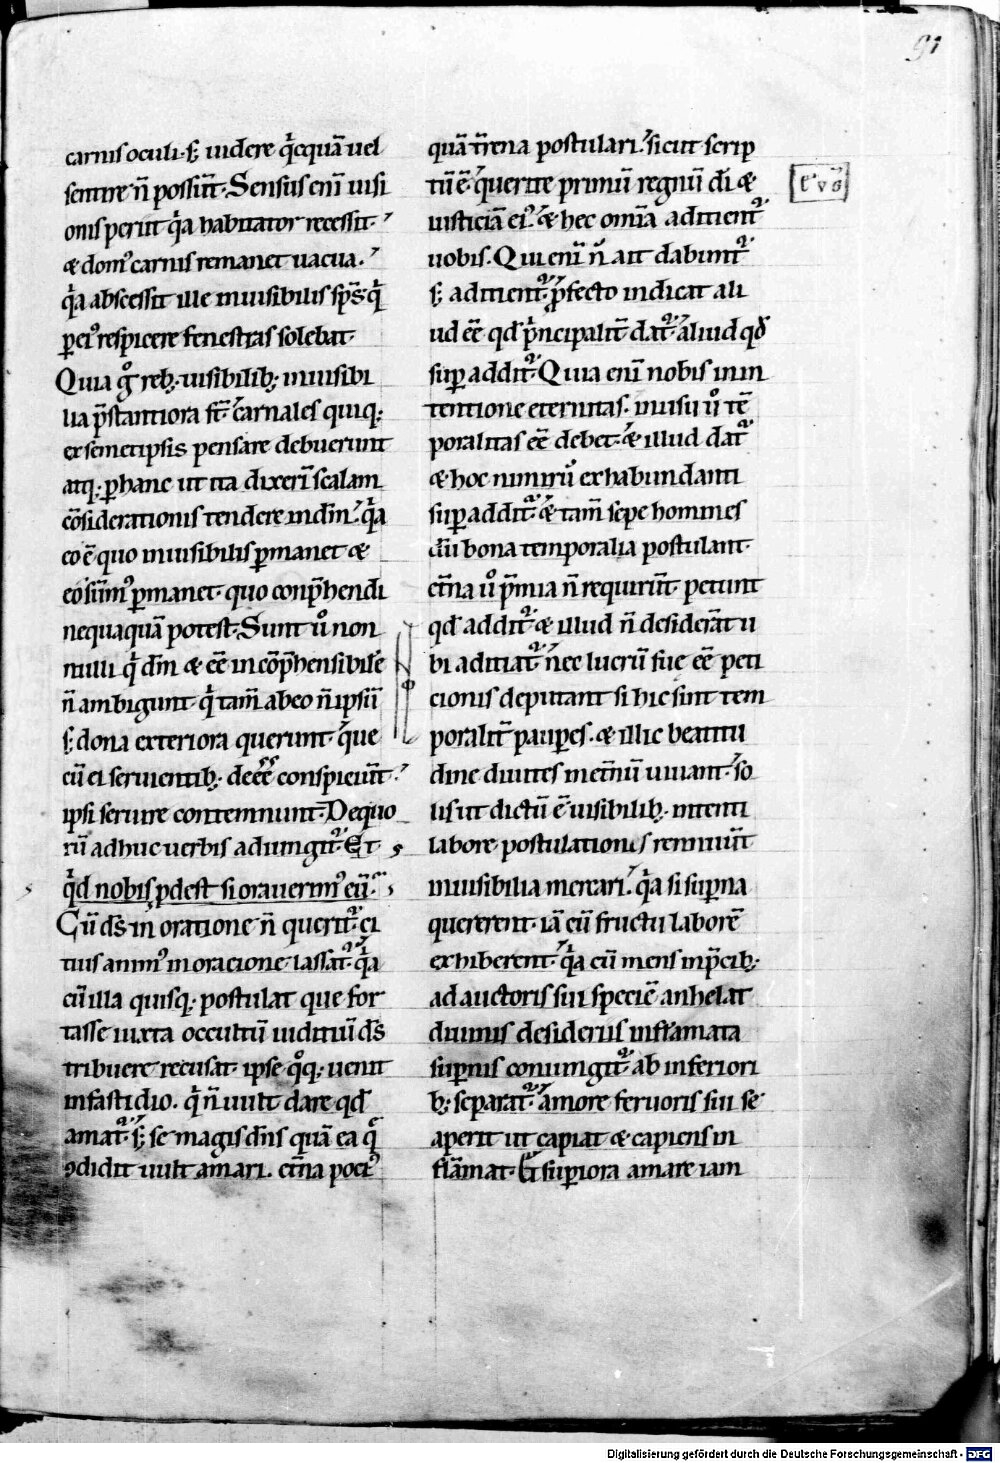 91
carnis oculi· sꝫ uidere qͥcquā uel
sentire n̄ possūt· Sensus enī uisi
onis periit qͥa habitator recessit·
& dom᷒ carnis remanet uacua·
qͥa abscessit ille inuisibilis sp̄s· qͥ
ꝑ ei᷒ respicere fenestras solebat·
Quia gͦ rebꝫ· uisibilibꝫ· inuisibi
lia p̄stantiora st̄· carnales quiqꝫ·
ex semetipsis pensare debuerunt
atqꝫ· ꝑ hanc ut ita dixerī scalam
cōsiderationis tendere in dm̄· qͥa
eo ē quo inuisibilis ꝑmanet &
eo sūm᷒ ꝑmanet· quo conp̄hendi
nequaquā potest· Sunt u̾o non
nulli qͥ dm̄ & eē incōp̄hensibilē
n̄ ambigunt· qͥ tam̄ ab eo n̄ ipsū
sꝫ dona exteriora querunt· que
cū ei seruientibꝫ· deeē conspiciūt·
ipsi seruire contemnunt· De quo
rū adhuc uerbis adiungit᷑· Et
qͥd nobis ꝓdest si orauerim᷒ eū·
Cū ds̄ in oratione n̄ querit᷑· ci
tius anim᷒ in oracione lassat᷑· qͥa
cū illa quisqꝫ· postulat que for
tasse iuxta occultū iuditiū ds̄
tribuere recusat· ipse qͦqꝫ· uenit
in fastidio· qͥ n̄ uult dare qd̄
amat᷑· sꝫ se magis dn̄s quā ea q̄
ꝯdidit uult amari· et̄na poci᷒
quā t̄rena postulari· sicut scrip
tū ē· querite primū regnū dī &
iusticiā ei᷒· & hec omīa adiicient᷑
uobis· Qui enī n̄ ait dabunt᷑
sꝫ adiicient᷑· ꝓfecto indicat ali
ud eē qd̄ pͥncipalit̄ dat᷑· aliud qd̄
suꝑaddit᷑· Quia enī nobis in in
tentione eternitas· in usu u̾o tē
poralitas eē debet· & illud dat᷑
& hoc nimirū ex habundanti
suꝑaddit᷑· & tam̄ sepe homines
dū bona temporalia postulant·
et̄na u̾o p̄mia n̄ requirūt· petunt
qd̄ addit᷑· & illud n̄ desiderāt u
bi adiciat᷑· nec lucrū sue eē peti
cionis deputant si hic sint tem
poralit̄ pauꝑes· & illic beatitu
dine diuites in et̄nū uiuant· so
lis ut dictū ē uisibilibꝫ· intenti
labore postulationis rennuūt
inuisibilia mercari· qͥa si suꝑna
quererent· iā cū fructu laborē
exhiberent· qͥa cū mens in p̄cibꝫ·
ad auctoris sui speciē anhelat
diuinis desideriis inflāmata
suꝑnis coniungit᷑· ab inferiori
bꝫ· separat᷑· amore feruoris sui se
aperit ut capiat & capiens in
flāmat· Et suꝑiora amare iam
Digitalisierung gefördert durch die Deutsche Forschungsgemeinschaft - DFG